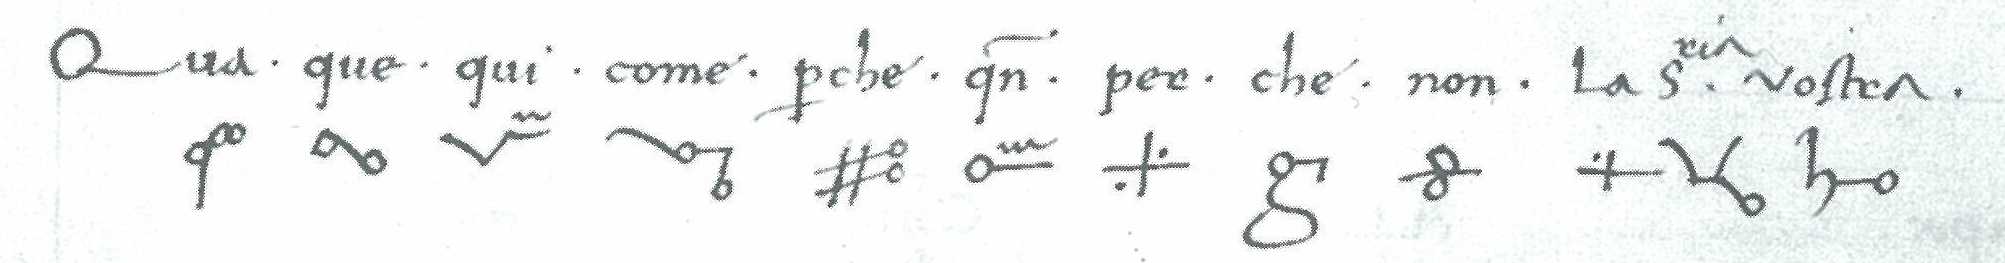 Qua · que · qui · come · pche · qn̄ · per · che · non · La S.ria vostra .